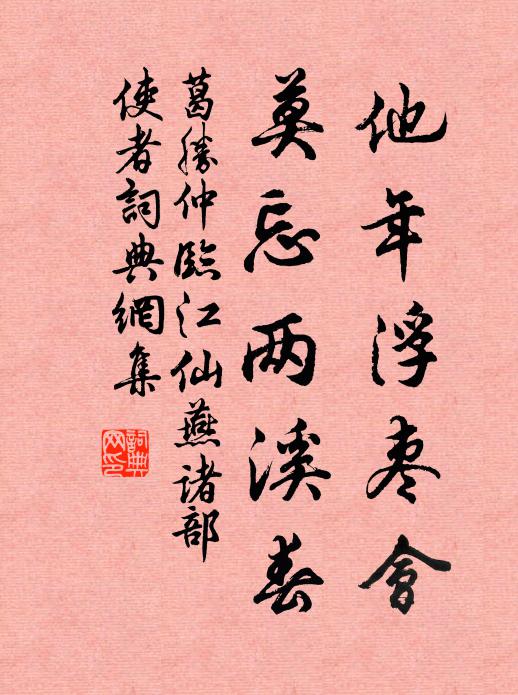 他年浮枣會
莫忘两溪春
葛勝仲臨江仙燕诸部
使者詞典網集
詞典网印